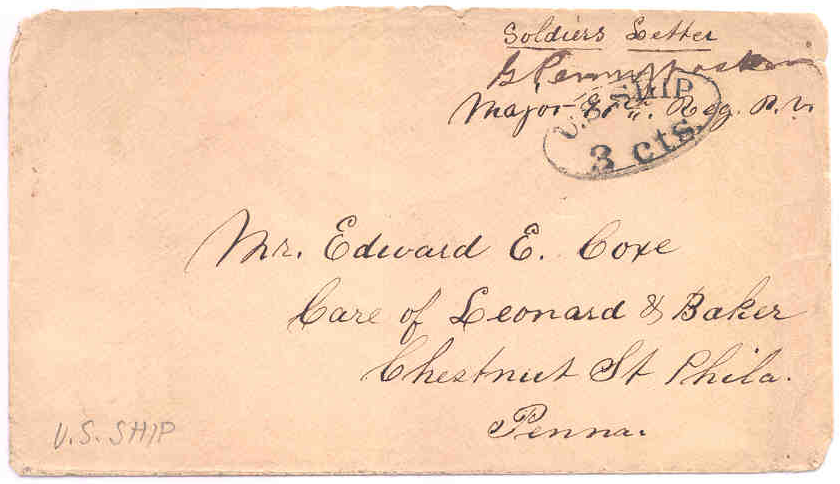 Soldiers Letter
G. Pennypacker
Major 97th. Reg. P. V.
U.S. SHIP
3 cts.
Mr. Edward E. Coxe
Care of Leonard & Baker
Chestnut St Phila.
Penna.
U.S. SHIP